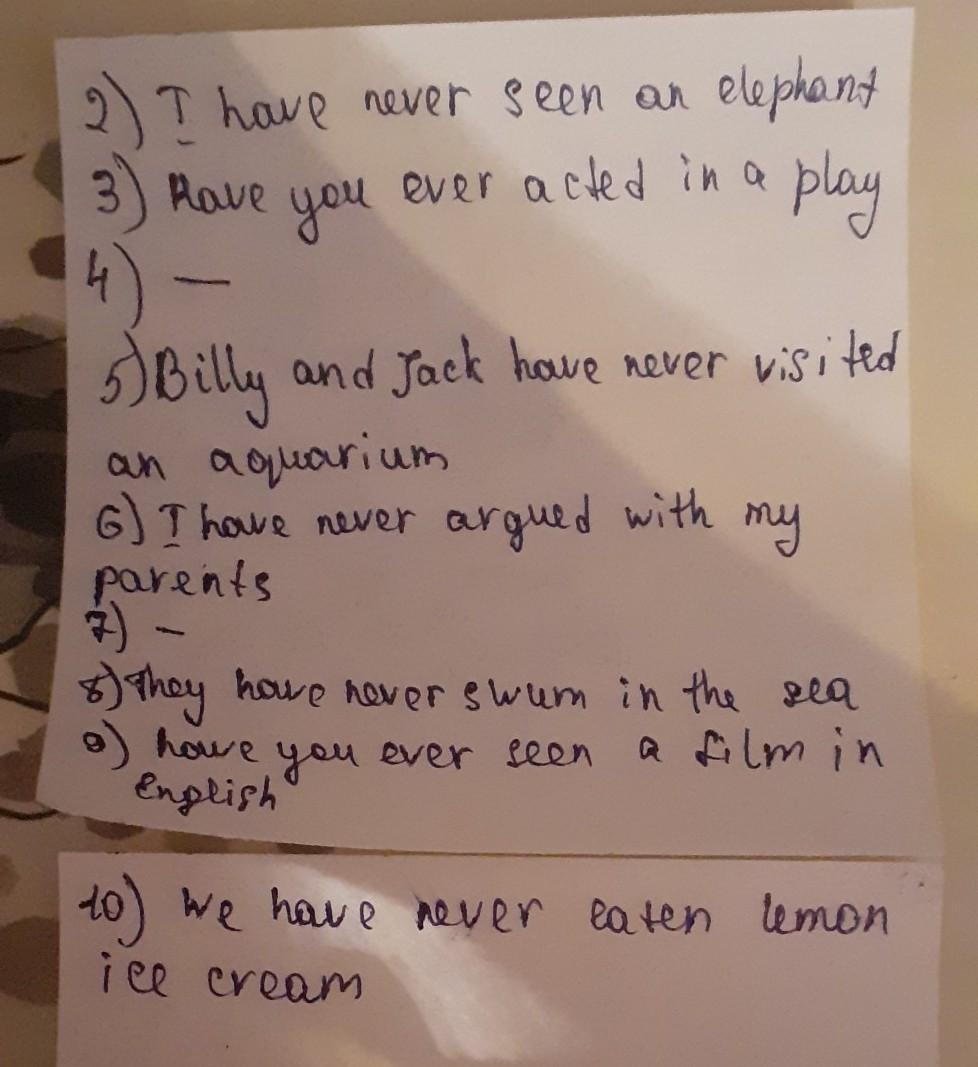 2) I have never seen an elephant
3) Have you ever acted in a play
4) —
5) Billy and Jack have never visited
an aquarium
6) I have never argued with my
parents
7) –
8) They have never swum in the sea
9) have you ever seen a film in
English
10) We have never eaten lemon
ice cream